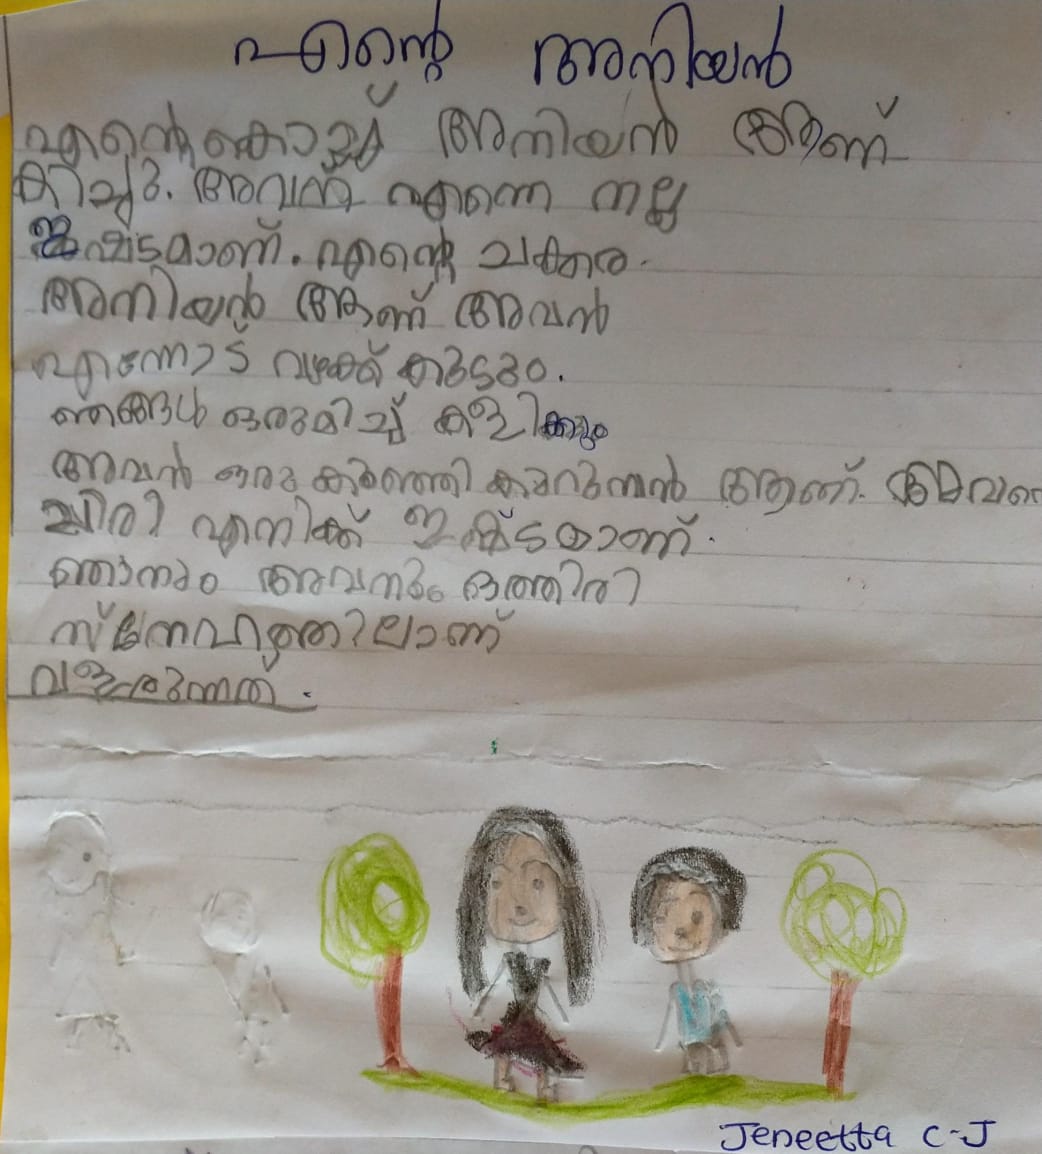 എന്റെ അനിയൻ
എന്റെ കൊച്ചു് അനിയൻ ആണ്
കിച്ചു. അവന് എന്നെ നല്ല
ഇഷ്ടമാണ്. എന്റെ ചക്കര
അനിയൻ ആണ് അവൻ
എന്നോട് വഴക്ക് കുടും.
ഞങ്ങൾ ഒരുമിച്ച് കളിക്കും
അവൻ ഒരു കുഞ്ഞി കുറുമ്പൻ ആണ്. അവന്റെ
ചിരി എനിക്ക് ഇഷ്ടമാണ്.
ഞാനും അവനും ഒത്തിരി
സ്നേഹത്തിലാണ്
വളരുന്നത്.
Jeneetta C-J